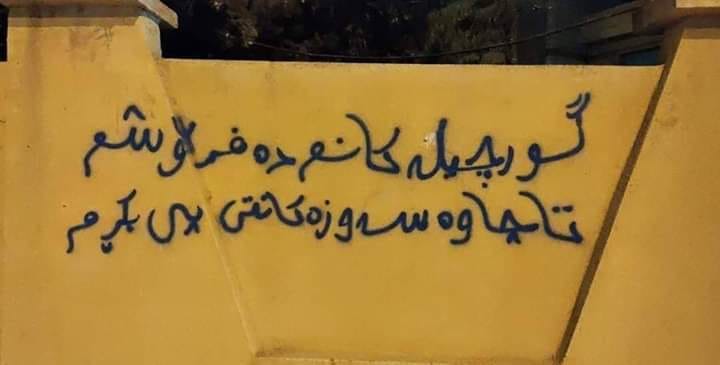 گورچیلەکانم دەفرۆشم
تا چاوە سەوزەکانتی پێ بکڕم